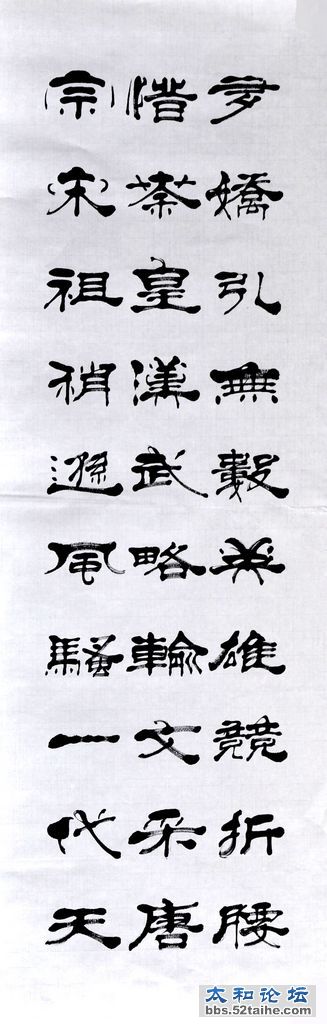 多嬌引無數英雄競折腰
惜秦皇漢武略輸文采唐
宗宋祖稍遜風騷一代天
太和论坛
bbs.52taihe.com